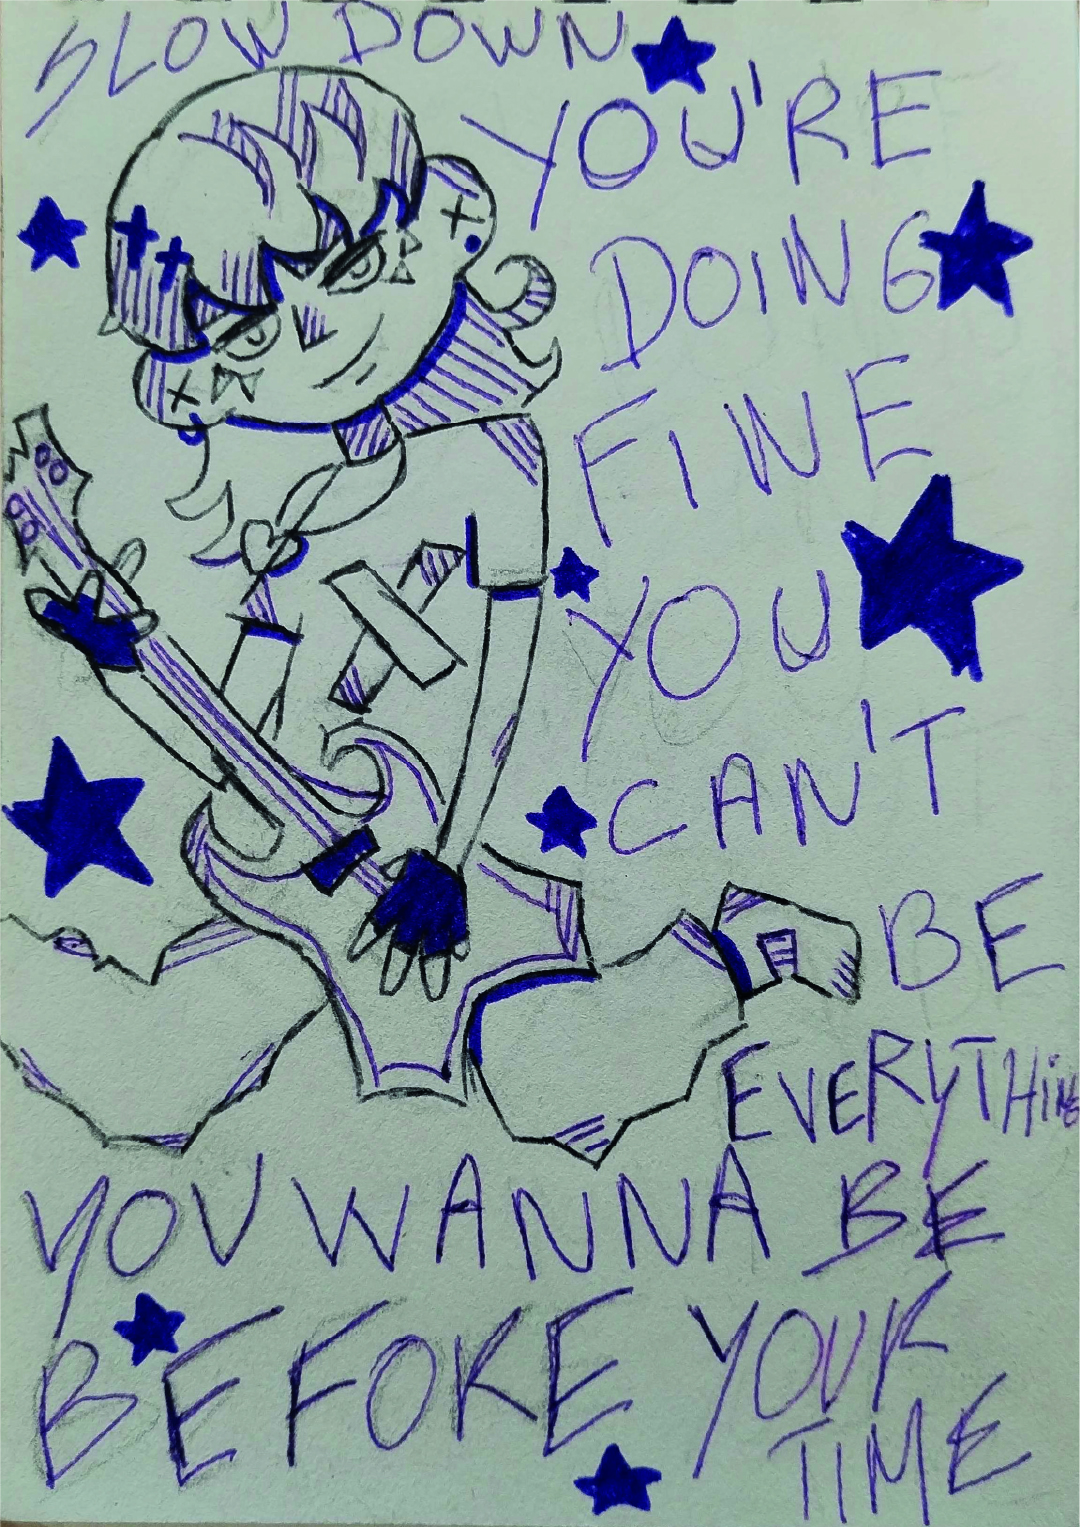 SLOW DOWN
YOU'RE
DOING
FINE
YOU
CAN'T
BE
EVERYTHING
YOU WANNA BE
BEFORE YOUR
TIME